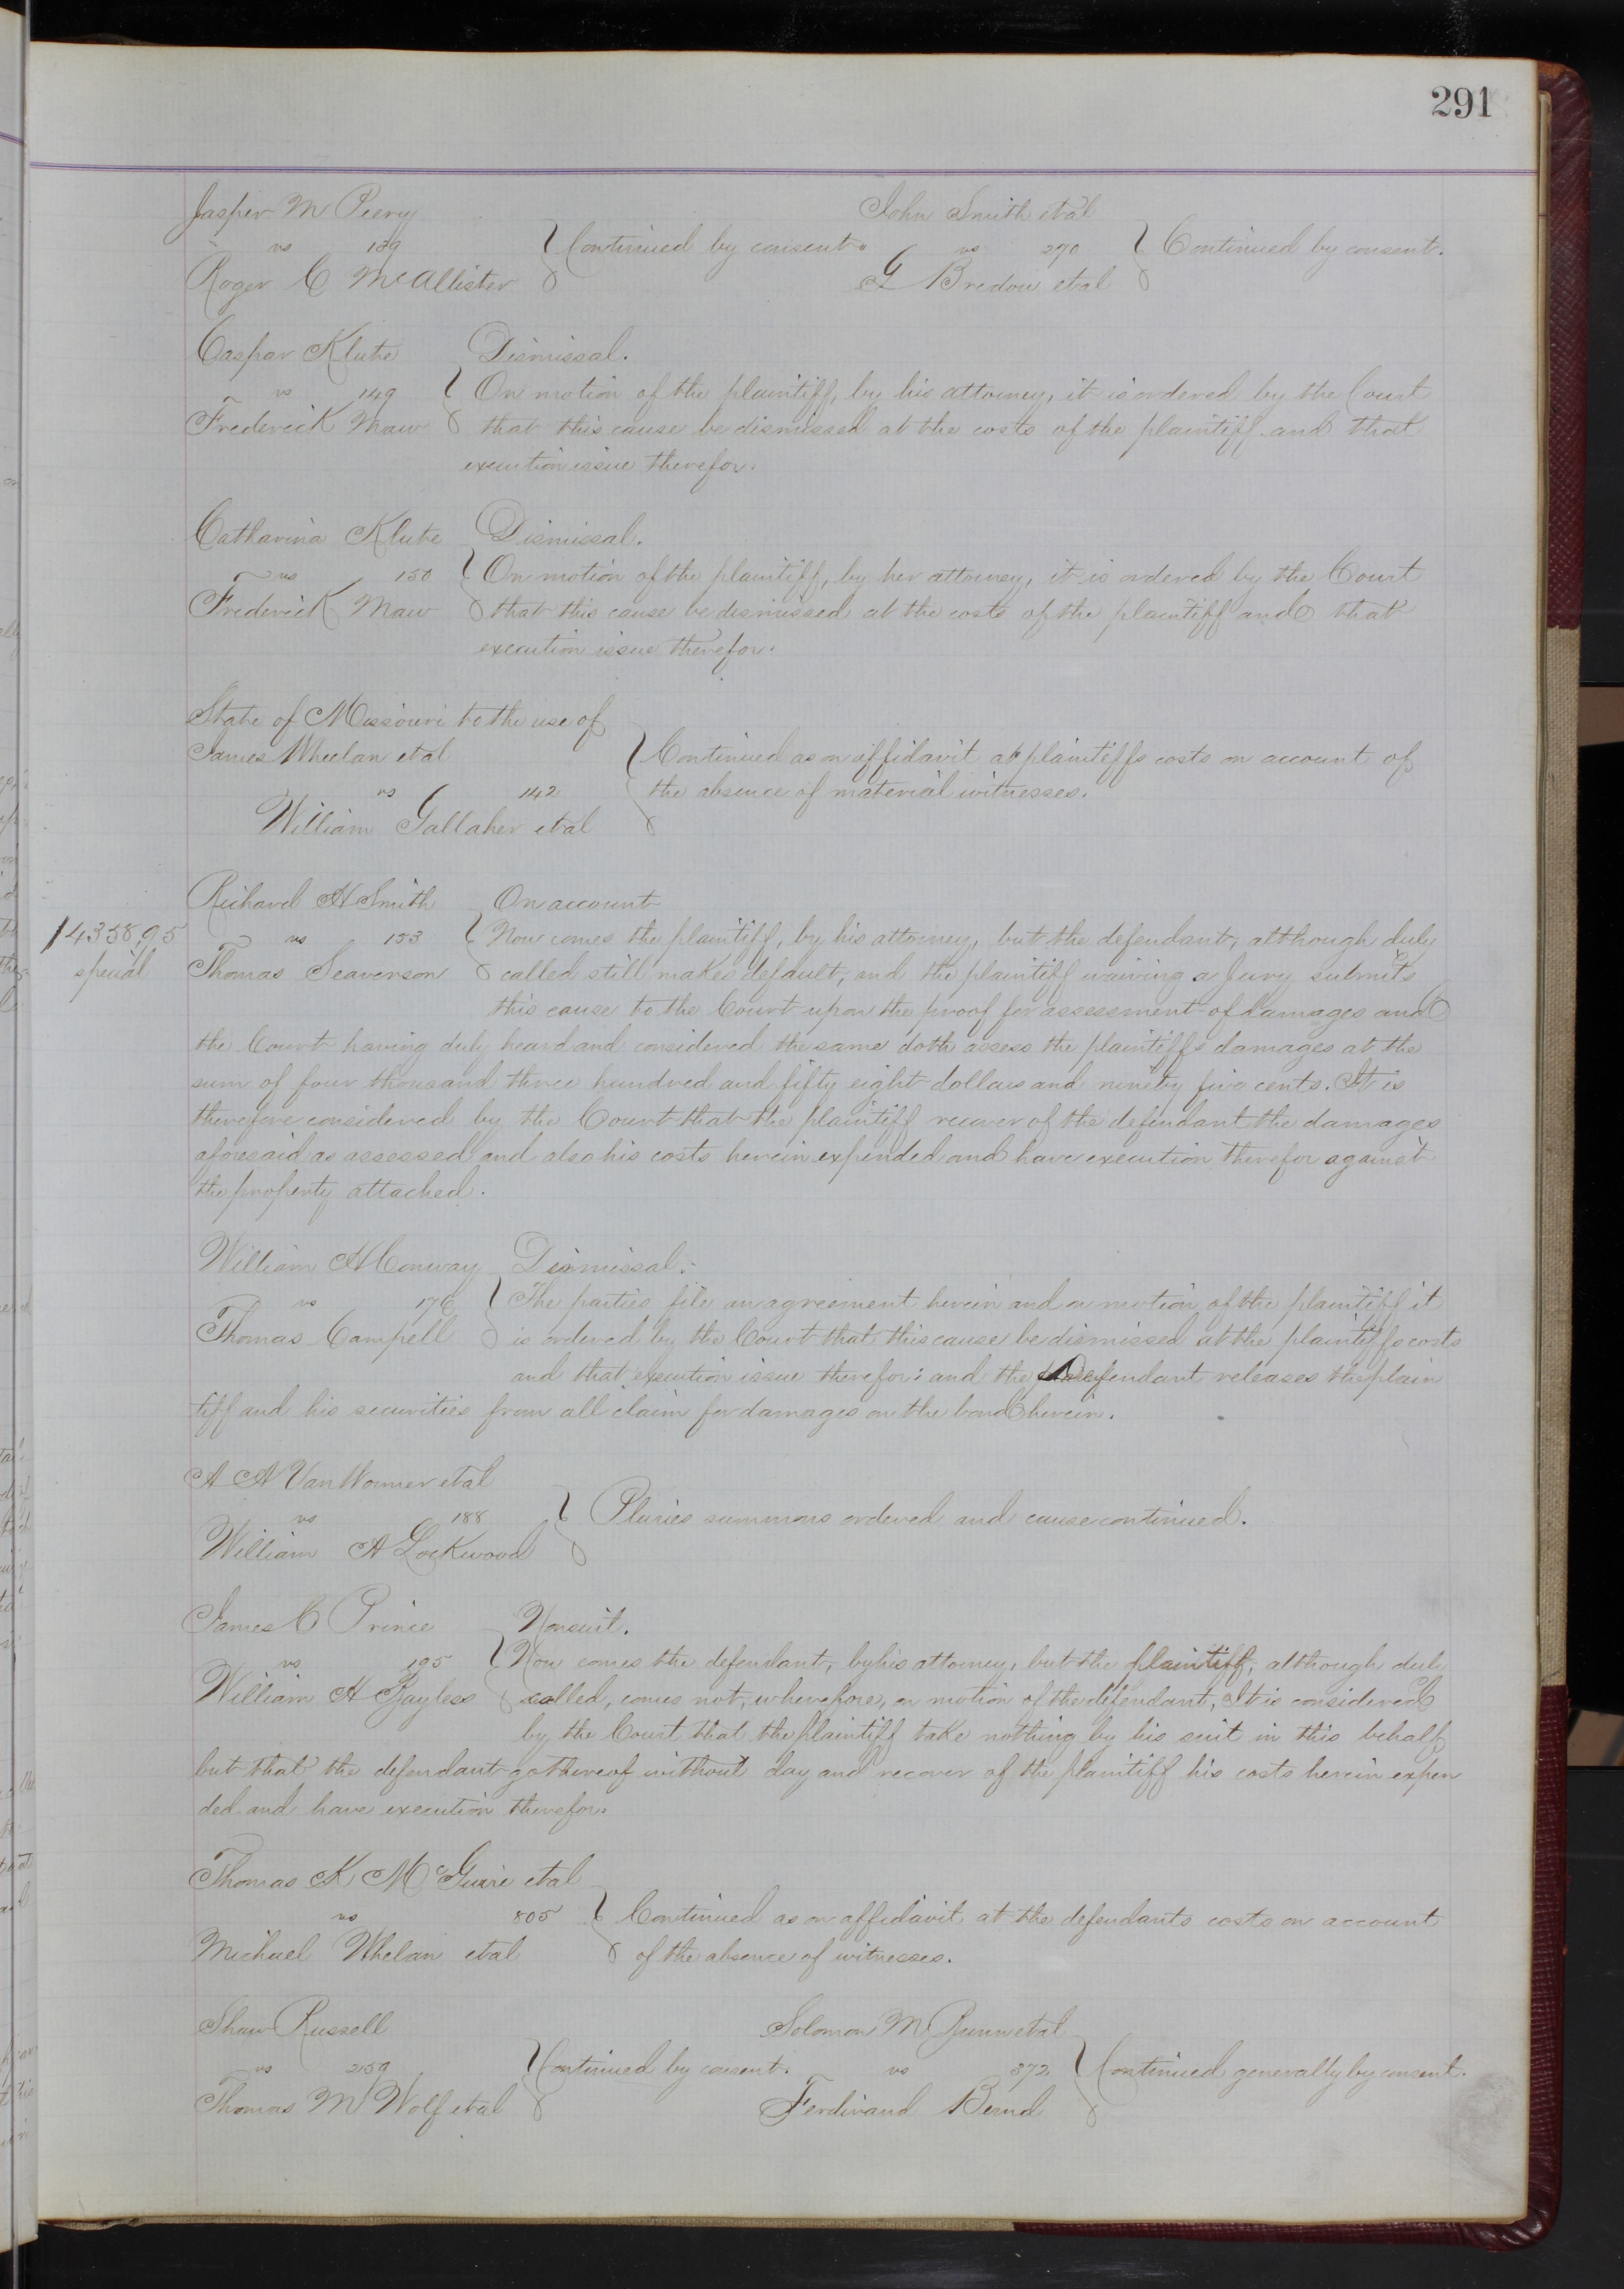 291
Jasper M Peery
vs 139
Roger C McAllister
Continued by consent.
John Smith et al
vs 290
G Bredow et al
Continued by consent.
Caspar Klute
vs 149
Frederick Maw
Dismissal.
On motion of the plaintiff, by his attorney, it is ordered by the Court
that this cause be dismissed at the costs of the plaintiff and that
execution issue therefor.
Catharina Klute
vs 150
Frederick Maw
Dismissal.
On motion of the plaintiff, by her attorney, it is ordered by the Court
that this cause be dismissed at the costs of the plaintiff and that
execution issue therefor.
State of Missouri to the use of
James Wheelan et al
vs 142
William Gallaher et al
Continued as on affidavit at plaintiffs costs on account of
the absence of material witnesses.
4358,95
special
Richard H Smith
vs 153
Thomas Seaverson
On account
Now comes the plaintiff, by his attorney, but the defendant, although duly
called still makes default, and the plaintiff waiving a Jury submits
this cause to the Court upon the proof for assessment of damages and
the Court having duly heard and considered the same doth assess the plaintiffs damages at the
sum of four thousand three hundred and fifty eight dollars and ninety five cents. It is
therefore considered by the Court that the plaintiff recover of the defendant the damages
aforesaid as assessed and also his costs herein expended and have execution therefor against
the property attached.
William H Conway
vs 176
Thomas Campell
Dismissal.
The parties file an agreement herein and on motion of the plaintiff it
is ordered by the Court that this cause be dismissed at the plaintiffs costs
and that execution issue therefor: and the Defendant releases the plain
tiff and his securities from all claim for damages on the bond herein.
A A Van Wormer et al
vs 188
William A Lockwood
Pluries summons ordered and cause continued.
James C Prince
vs 195
William H Bayless
Nonsuit.
Now comes the defendant, by his attorney, but the plaintiff, although duly
called, comes not, wherefore, on motion of the defendant, It is considered
by the Court that the plaintiff take nothing by his suit in this behalf
but that the defendant go thereof without day and recover of the plaintiff his costs herein expen
ded and have execution therefor.
Thomas K McGuire et al
vs 805
Michael Whelan et al
Continued as on affidavit at the defendants costs on account
of the absence of witnesses.
Shaw Russell
vs 2159
Thomas M Wolf et al
Continued by consent.
Solomon M Bunn et al
vs 372
Ferdinand Bernd
Continued generally by consent.